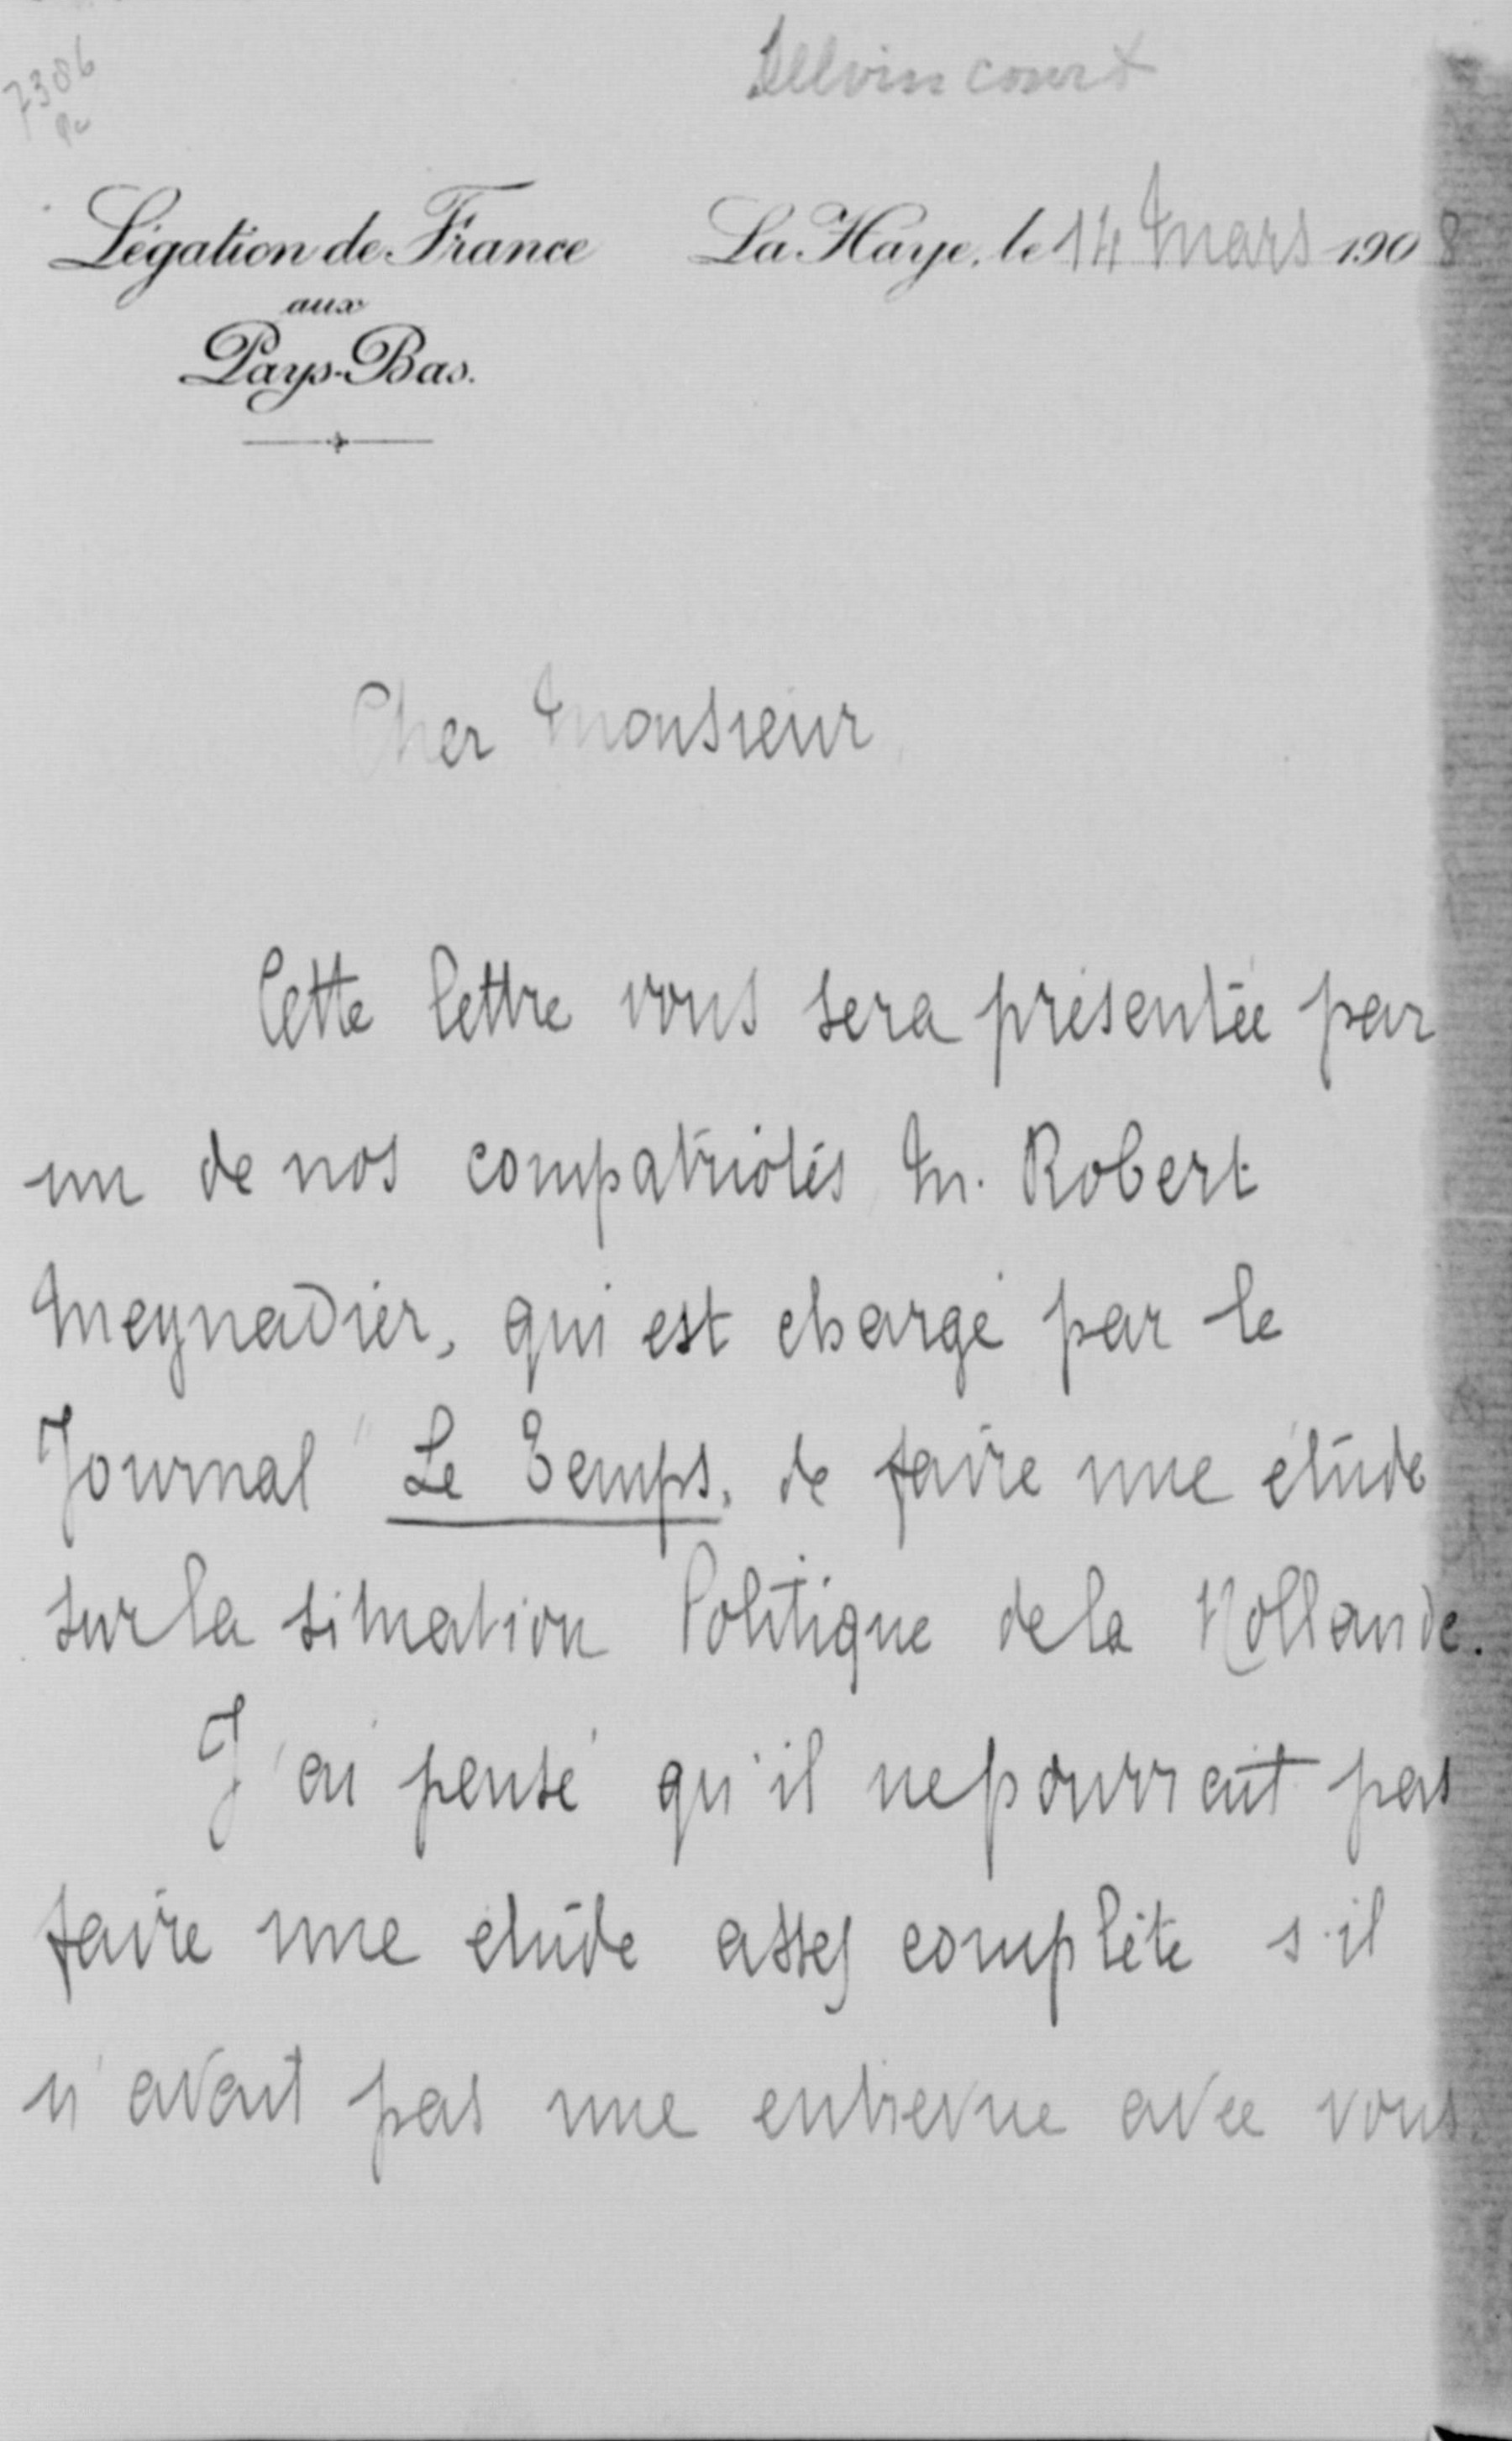 7386
Sellvincourt
Légation de France
aux
Pays-Bas.
La Haye, le 14 Mars 1908
Cher Monsieur,
Cette lettre vous sera présentée par
un de nos compatriotes, M. Robert
Meynadier, qui est chargé par le
Journal "Le Temps, de faire une étude
sur la situation Politique de la Hollande.
J'ai pensé qu'il ne pourrait pas
faire une étude assez complète s'il
n'avait pas une entrevue avec vous.